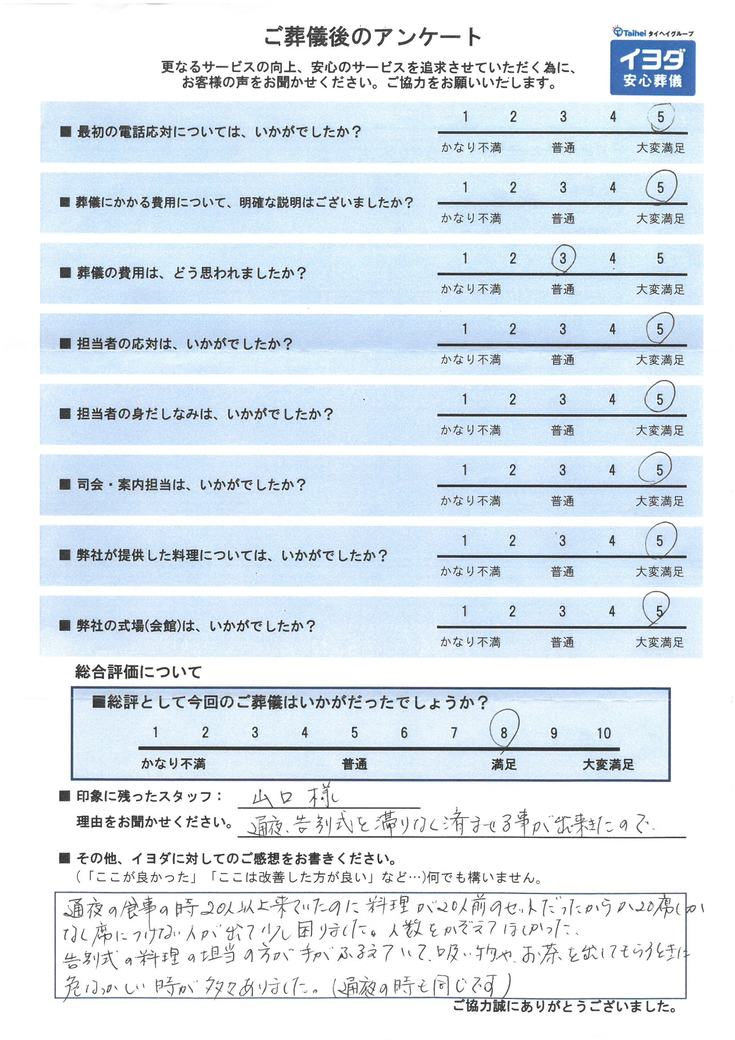 ご葬儀後のアンケート
Taihei タイヘイグループ
イヨダ
安心葬儀
更なるサービスの向上、安心のサービスを追求させていただく為に、
お客様の声をお聞かせください。ご協力をお願いいたします。
■ 最初の電話応対については、いかがでしたか？
1 2 3 4 5
かなり不満 普通 大変満足
■ 葬儀にかかる費用について、明確な説明はございましたか？
1 2 3 4 5
かなり不満 普通 大変満足
■ 葬儀の費用は、どう思われましたか？
1 2 3 4 5
かなり不満 普通 大変満足
■ 担当者の応対は、いかがでしたか？
1 2 3 4 5
かなり不満 普通 大変満足
■ 担当者の身だしなみは、いかがでしたか？
1 2 3 4 5
かなり不満 普通 大変満足
■ 司会・案内担当は、いかがでしたか？
1 2 3 4 5
かなり不満 普通 大変満足
■ 弊社が提供した料理については、いかがでしたか？
1 2 3 4 5
かなり不満 普通 大変満足
■ 弊社の式場(会館)は、いかがでしたか？
1 2 3 4 5
かなり不満 普通 大変満足
総合評価について
■総評として今回のご葬儀はいかがだったでしょうか？
1 2 3 4 5 6 7 8 9 10
かなり不満 普通 満足 大変満足
■ 印象に残ったスタッフ： 山口 様
理由をお聞かせください。 通夜、告別式を滞りなく済ませる事が出来きたので.
■ その他、イヨダに対してのご感想をお書きください。
（「ここが良かった」「ここは改善した方が良い」など…)何でも構いません。
通夜の食事の時20人以上来ていたのに料理が20人前のセットだったからか20席しか
なく席につけない人が出て少し困りました。人数をかぞえてほしかった.
告別式の料理の担当の方が手がふるえていて、吸い物や、お茶を出してもらうときに
危なっかしい時が多々ありました。(通夜の時も同じです)
ご協力誠にありがとうございました。